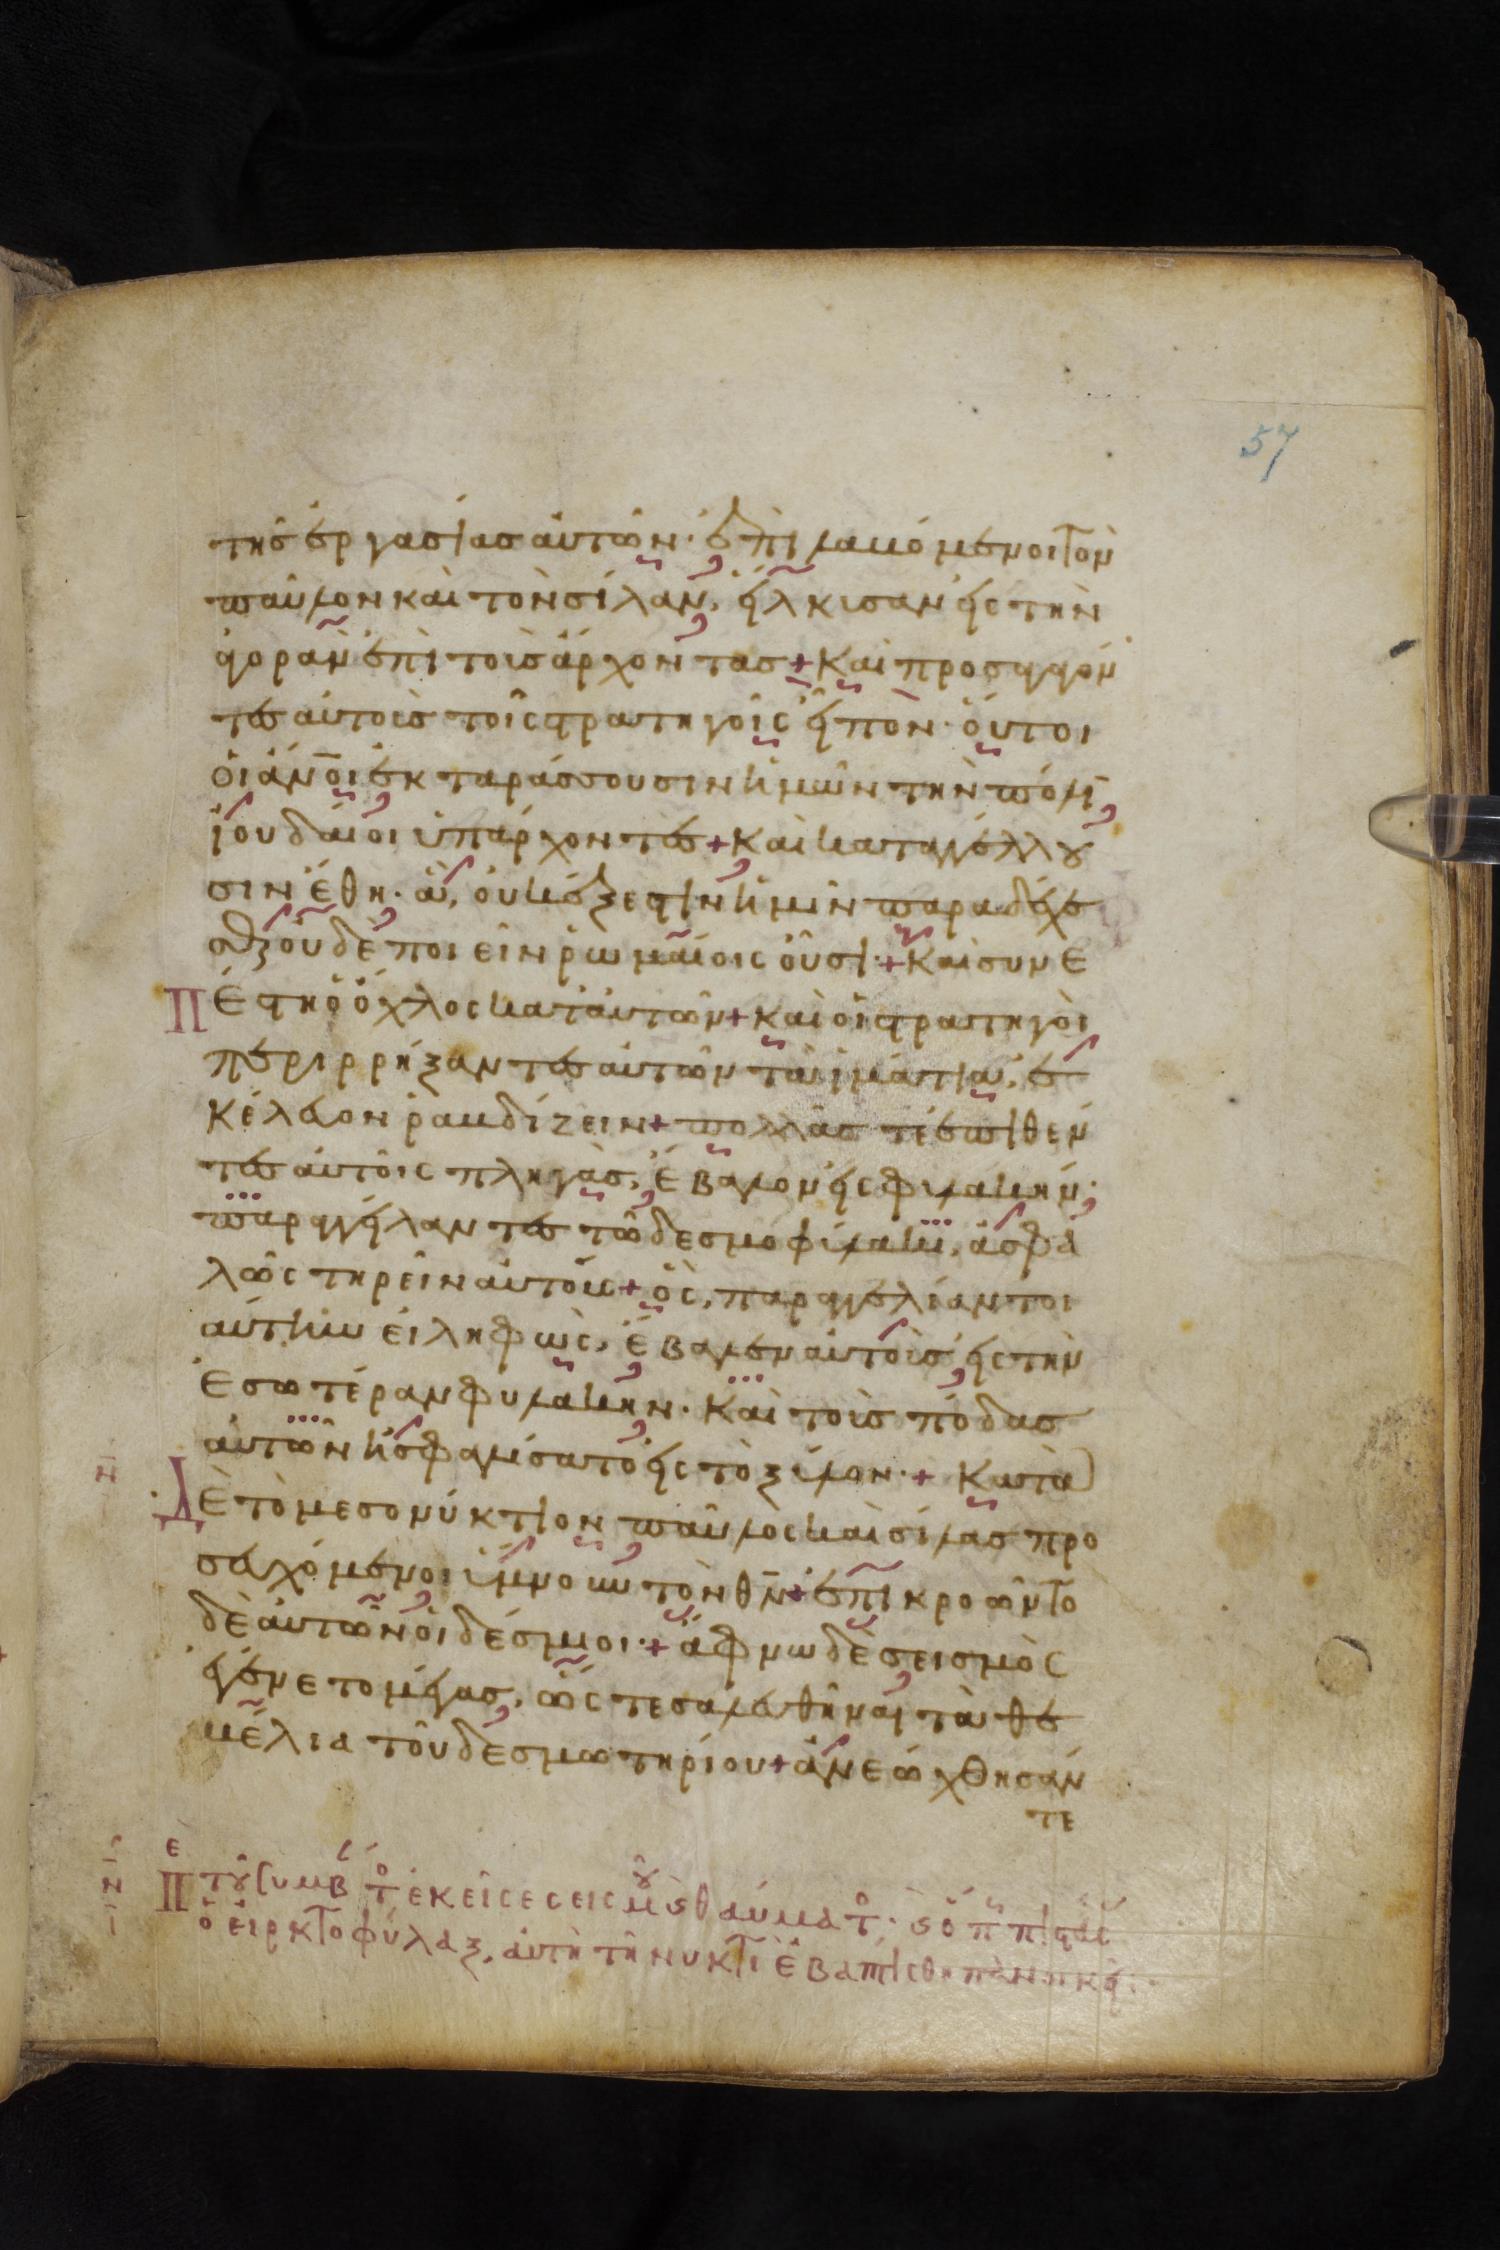 57
της ἐργασίας αὐτῶν· ἐπιλαβόμενοι τὸν
παῦλον καὶ τὸν σίλαν, εἵλκυσαν εἰς τὴν
ἀγορὰν ἐπὶ τοὺς ἄρχοντας + Καὶ προσαγαγόν
τες αὐτοὺς τοῖς στρατηγοῖς εἶπον· οὗτοι
οἱ ἄν̅οι ἐκταράσσουσιν ἡμῶν τὴν πόλι̅
ἰουδαῖοι ὑπάρχοντες + Καὶ καταγγέλλου
σιν ἔθη· ἃ, οὐκ ἔξεστιν ἡμῖν παραδέχε
σθαι οὐδὲ ποιεῖν ῥωμαίοις οὖσι·+ Καὶ συνε
Π έστη ὁ ὄχλος κατ' αὐτῶν + καὶ οἱ στρατηγοὶ
περιρρήξαντες αὐτῶν τὰ ἱμάτια, ἐ
κέλευον ῥαβδίζειν + πολλάς τε ἐπιθέν
τες αὐτοῖς πληγὰς, ἔβαλον εἰς φυλακήν·
παραγγείλαντες τῶ δεσμοφύλακι, ἀσφα
λῶς τηρεῖν αὐτούς + ὃς, παραγγελίαν τοι
αύτην εἰληφὼς, ἔβαλεν αὐτοὺς εἰς τὴν
ἐσωτέραν φυλακὴν· Καὶ τοὺς πόδας
αὐτῶν ἠσφαλίσατο εἰς τὸ ξύλον·+ Κατὰ
Δ ὲ τὸ μεσονύκτιον παῦλος καὶ σίλας προ
σευχόμενοι ὕμνουν τὸν θ̅ν̅ + ἐπηκροῶντο
δὲ αὐτῶν οἱ δέσμιοι·+ ἄφνω δὲ σεισμὸς
ἐγένετο μέγας, ὥς τε σαλευθῆναι τὰ θε
μέλια τοῦ δεσμωτηρίου + ἀνεώχθησάν
τε
Π ε τοῦ συμβ τ ἐκεῖσε σεισμοῦ θαύματ·
ὁ εἱρκτοφύλαξ, αὐτῆ τῆ νυκτὶ ἐβαπτίσθη πανοικεί·